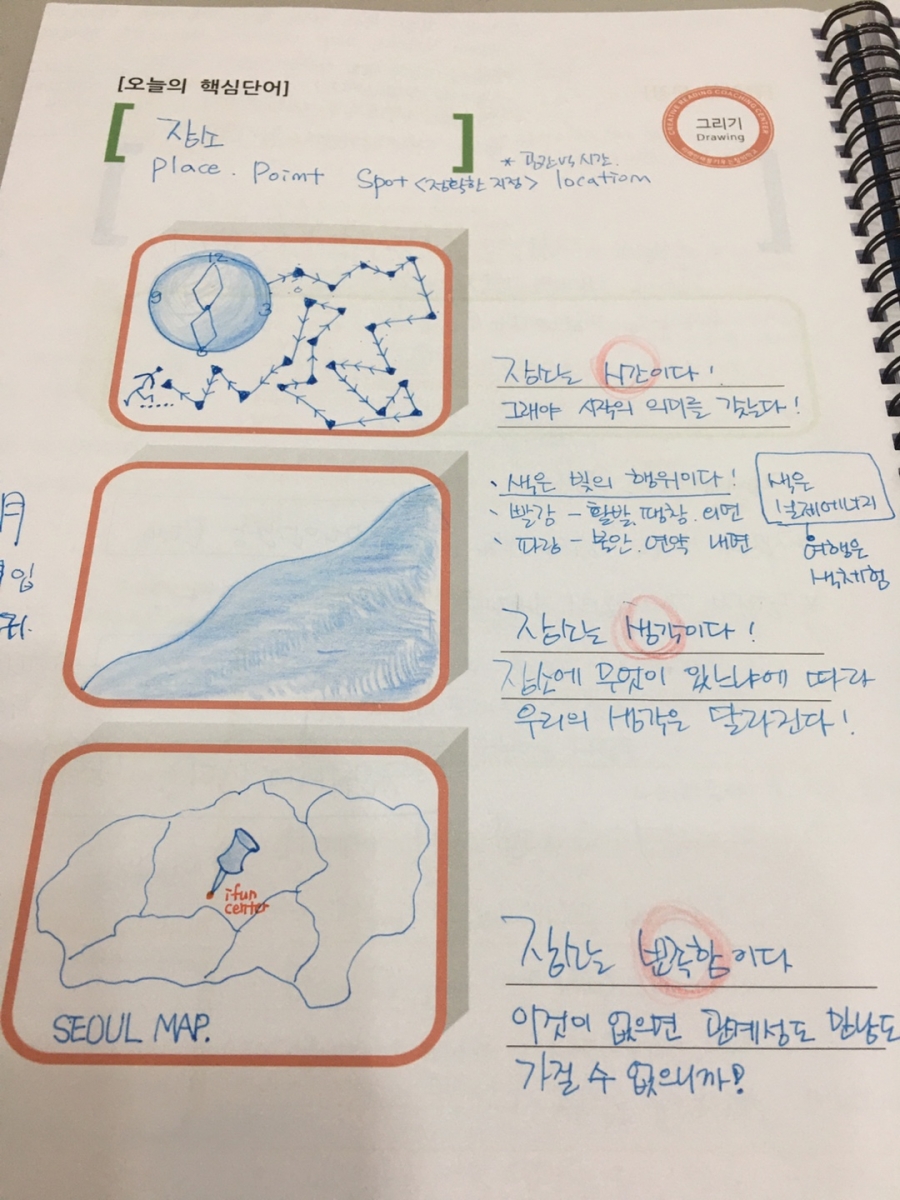 [오늘의 핵심단어]
CREATIVE READING COACHING CENTER
그리기
Drawing
장소
* 공간 vs 시간.
place. point spot <정확한 지점> location
12
9
3
6
장소는 시간이다!
그래야 시작의 의미를 갖는다!
색은 빛의 행위이다!
빨강 - 활발, 팽창, 외면
파랑 - 불안, 연약 내면
색은
여행은
색체험
장소는 생각이다!
장소에 무엇이 있느냐에 따라
우리의 생각은 달라진다!
ifun
center
SEOUL MAP.
장소는 이다
이것이 없으면 관계성도 만남도
가질 수 없으니까?